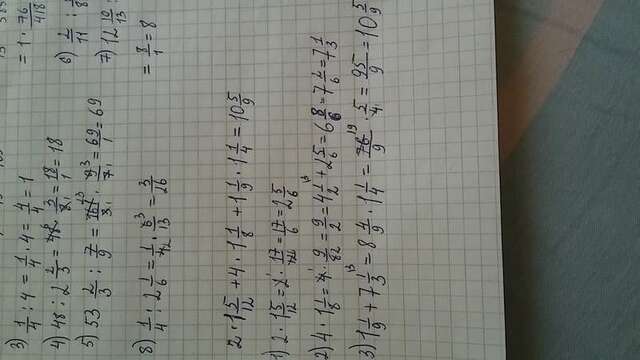 3) 1/4 : 4 = 1/4 · 4 = 4/4 = 1
4) 48 : 2 2/3 = 48 · 3/8 = 18/1 = 18
5) 53 2/3 : 7/9 = 161/3 · 9/7 = 69/1 = 69
8) 1/4 : 2 1/6 = 1/4 · 6/13 = 3/26
= 1 · 76/418
6) 2/11 :
7) 12 10/13 :
= 8/1 = 8
2 · 1 5/12 + 4 · 1 1/8 + 1 1/9 · 1 1/4 = 10 5/9
1) 2 · 1 5/12 = 2 · 17/12 = 17/6 = 2 5/6
2) 4 · 1 1/8 = 4 · 9/8 = 9/2 = 4 1/2 + 2 5/6 = 6 8/6 = 7 2/6 = 7 1/3
3) 1 1/9 + 7 1/3 = 8 4/9 · 1 1/4 = 76/9 · 5/4 = 95/9 = 10 5/9